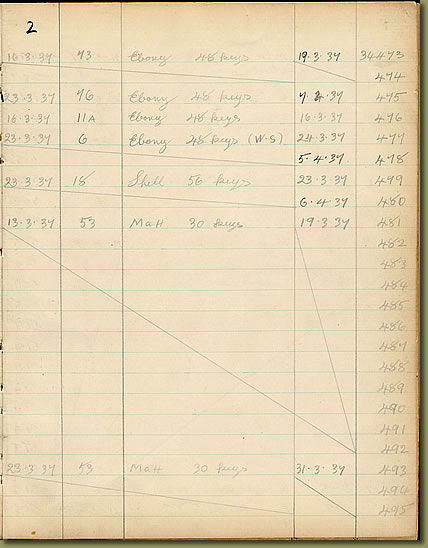 2
16.3.37 73 Ebony 48 keys 19.3.37 34473
474
23.3.37 76 Ebony 48 keys 7.4.37 475
16.3.37 11A Ebony 48 keys 16.3.37 476
23.3.37 6 Ebony 48 keys (W.S) 24.3.37 477
5.4.37 478
23.3.37 18 Shell 56 keys 23.3.37 479
6.4.37 480
13.3.37 53 Mah 30 keys 19.3.37 481
482
483
484
485
486
487
488
489
490
491
492
23.3.37 53 Mah 30 keys 31.3.37 493
494
495